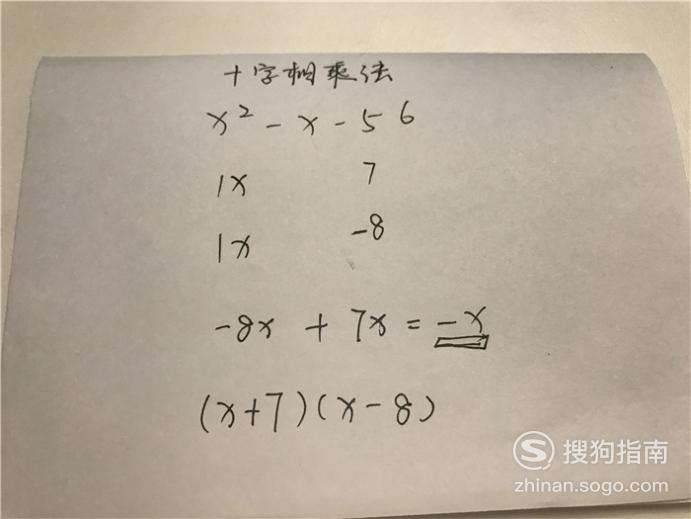 十字相乘法
x² - x - 56
1x 7
1x -8
-8x + 7x = -x
(x+7)(x-8)
搜狗指南
zhinan.sogo.com